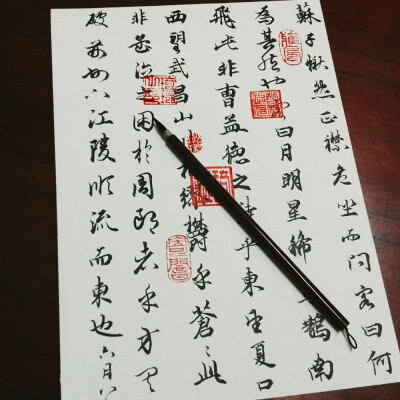 蘇子愀然正襟危坐而問客曰何
為其然也曰月明星稀鵲南
飛此非曹孟德之詩乎東望夏口
西望武昌山相繆鬱乎蒼〻此
非孟德之困於周郎者乎方其
破荊州下江陵順流而東也